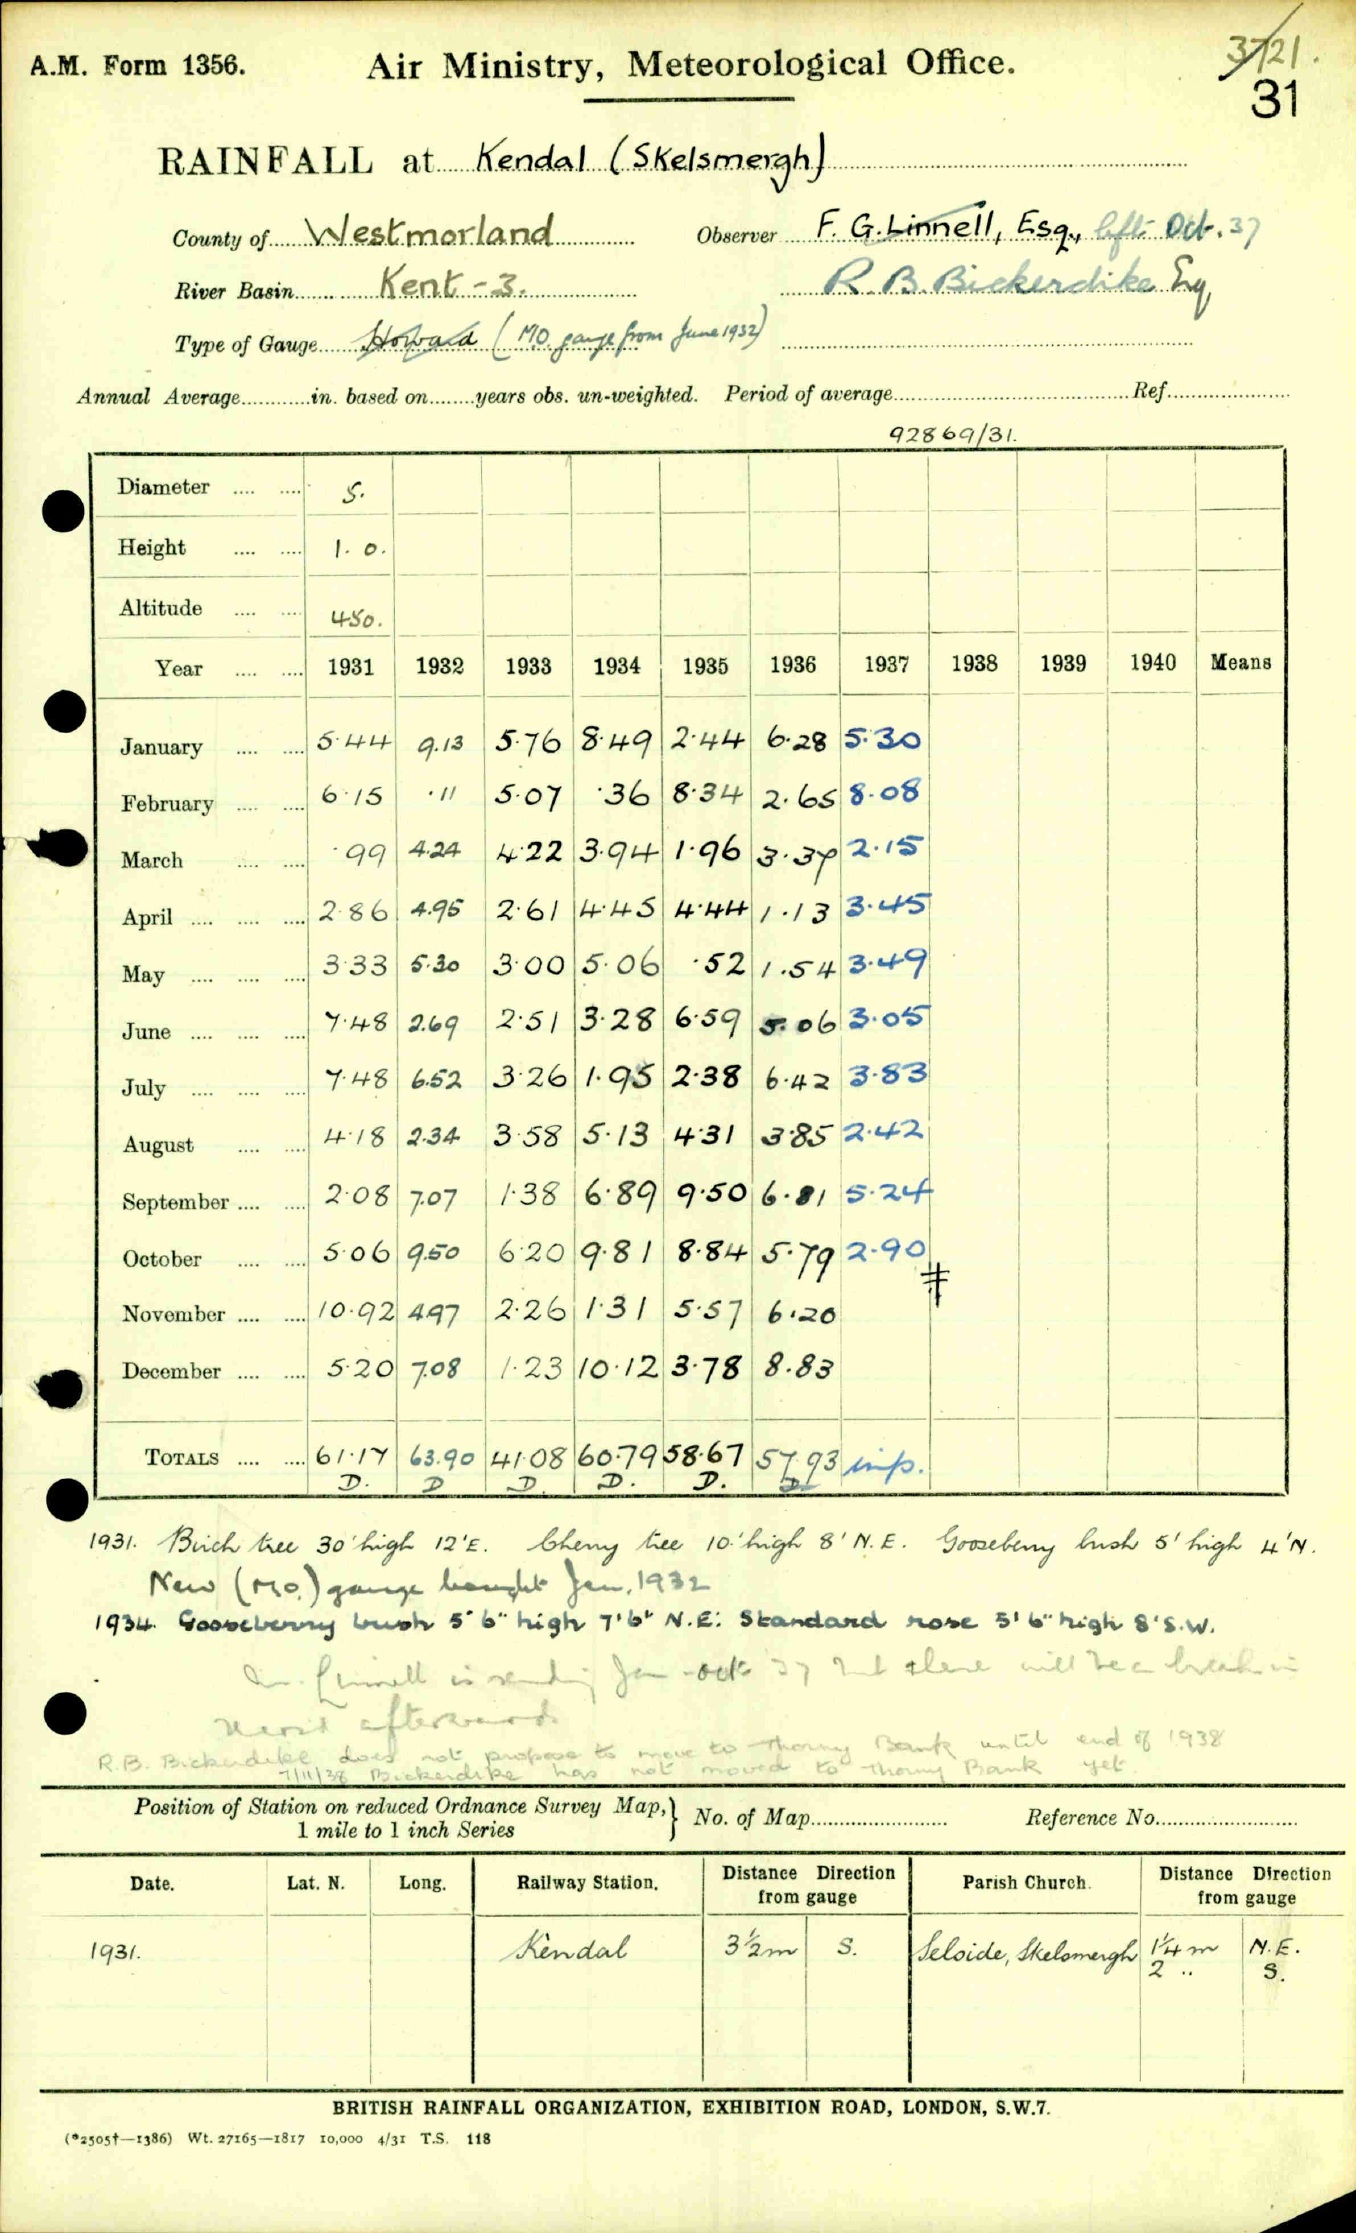 A.M. Form 1356. Air Ministry, Meteorological Office. 3/721.
31
RAINFALL at Kendal (Skelsmergh)
County of Westmorland Observer F. G. Linnell, Esq., left Oct. 37
River Basin Kent - 3. R. B. Bickerdike Esq
Type of Gauge Howard (M.O. gauge from June 1932)
Annual Average in. based on years obs. un-weighted. Period of average Ref.
92869/31.
Diameter 5.
Height 1. 0.
Altitude 450.
Year 1931 1932 1933 1934 1935 1936 1937 1938 1939 1940 Means
January 5.44 9.13 5.76 8.49 2.44 6.28 5.30
February 6.15 .11 5.07 .36 8.34 2.65 8.08
March .99 4.24 4.22 3.94 1.96 3.37 2.15
April 2.86 4.95 2.61 4.45 4.44 1.13 3.45
May 3.33 5.30 3.00 5.06 .52 1.54 3.49
June 7.48 2.69 2.51 3.28 6.59 5.06 3.05
July 7.48 6.52 3.26 1.95 2.38 6.42 3.83
August 4.18 2.34 3.58 5.13 4.31 3.85 2.42
September 2.08 7.07 1.38 6.89 9.50 6.81 5.24
October 5.06 9.50 6.20 9.81 8.84 5.79 2.90
November 10.92 4.97 2.26 1.31 5.57 6.20
December 5.20 7.08 1.23 10.12 3.78 8.83
TOTALS 61.17 63.90 41.08 60.79 58.67 57.93 inp.
D. D D. D. D. D
1931. Birch tree 30' high 12' E. Cherry tree 10' high 8' N.E. Gooseberry bush 5' high 4' N.
New (M.O.) gauge bought Jan, 1932
1934. Gooseberry bush 5' 6" high 7' 6" N.E: Standard rose 5' 6" high 8' S.W.
Linnell is sending Jan - Oct 37 but there will be a break in
afterwards
R.B. Bickerdike does not propose to move to Thorny Bank until end of 1938
7/11/38 Bickerdike has not moved to Thorny Bank yet.
Position of Station on reduced Ordnance Survey Map, } No. of Map Reference No.
1 mile to 1 inch Series
Date. Lat. N. Long. Railway Station. Distance Direction from gauge Parish Church. Distance Direction from gauge
1931. Kendal 3½ m S. Selside, Skelsmergh 1¼ m N.E.
2 " S.
BRITISH RAINFALL ORGANIZATION, EXHIBITION ROAD, LONDON, S.W.7.
(*2505†—1386) Wt. 27165—1817 10,000 4/31 T.S. 118